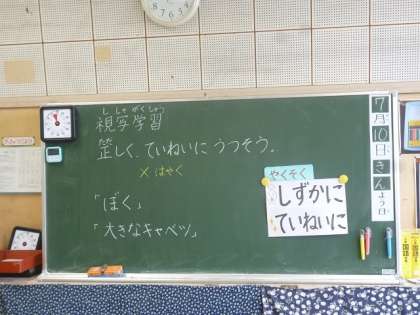 ししゃがくしゅう
視写学習
正しく、ていねいに うつそう。
× はやく
「ぼく」
「大きなキャベツ」
やくそく
しずかに
ていねいに
7月10日きんよう日